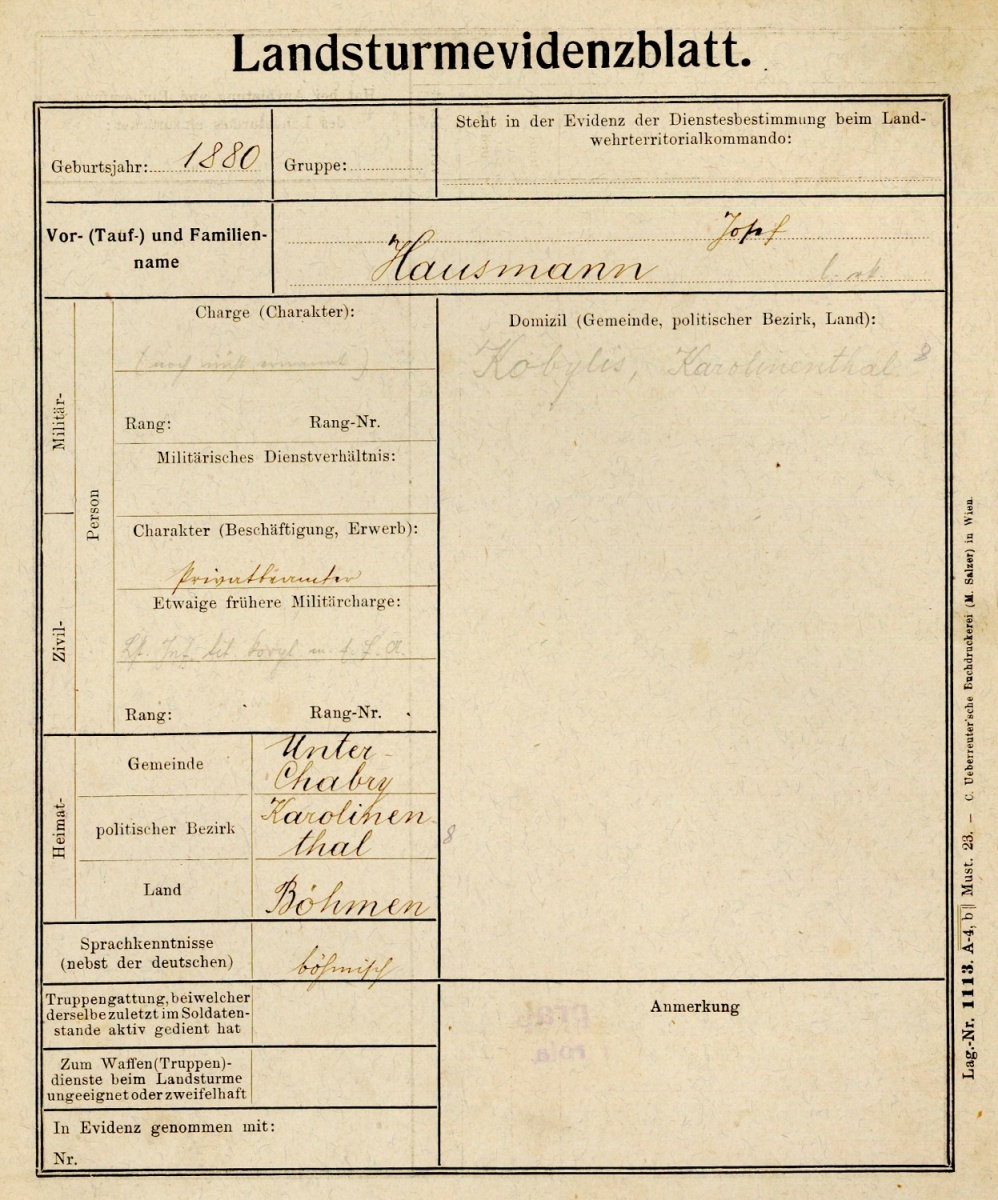 Landsturmevidenzblatt.
Geburtsjahr: 1880
Gruppe:
Steht in der Evidenz der Dienstesbestimmung beim Land-
wehrterritorialkommando:
Vor- (Tauf-) und Familien-
name
Josef
Hausmann
Militär-
Zivil-
Person
Charge (Charakter):
Rang: Rang-Nr.
Militärisches Dienstverhältnis:
Charakter (Beschäftigung, Erwerb):
Privatbeamter
Etwaige frühere Militärcharge:
Rang: Rang-Nr.
Domizil (Gemeinde, politischer Bezirk, Land):
Kobylis, Karolinenthal 8
Heimat-
Gemeinde
Unter-
Chabry
politischer Bezirk
Karolinen-
thal 8
Land
Böhmen
Sprachkenntnisse
(nebst der deutschen)
böhmisch
Truppengattung, bei welcher
derselbe zuletzt im Soldaten-
stande aktiv gedient hat
Zum Waffen(Truppen)-
dienste beim Landsturme
ungeeignet oder zweifelhaft
In Evidenz genommen mit:
Nr.
Anmerkung
Lag.-Nr. 1113. A-4, b || Must. 23. — C. Ueberreuter'sche Buchdruckerei (M. Salzer) in Wien.